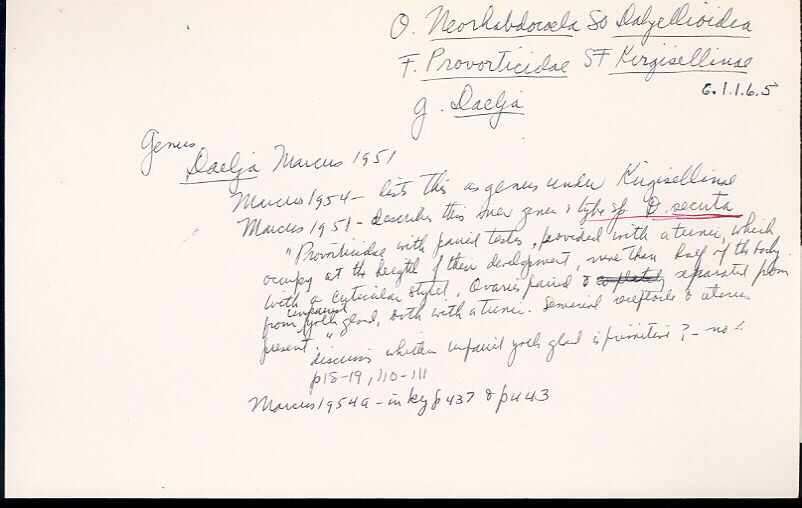 O. Neorhabdocoela SO Dalyellioidea
F. Provorticidae SF Kirgisellinae
6.1.1.6.5
g. Daelja
Genus
Daelja Marcus 1951
Marcus 1954 - lists this as genus under Kirgisellinae
Marcus 1951 - describes this new genus & type sp. D. secuta
"Provorticidae with paired testes, provided with a tunic, which
occupy at the height of their development, more than half of the body
with a cuticular stylet. Ovaries paired & completely separated from
from unpaired yolk gland, both with a tunic. Seminal receptacle & uterus
present."
discuss whether unpaired yolk gland is primitive? - no
p18-19, 110-111
Marcus 1954a - in key p 437 & p443